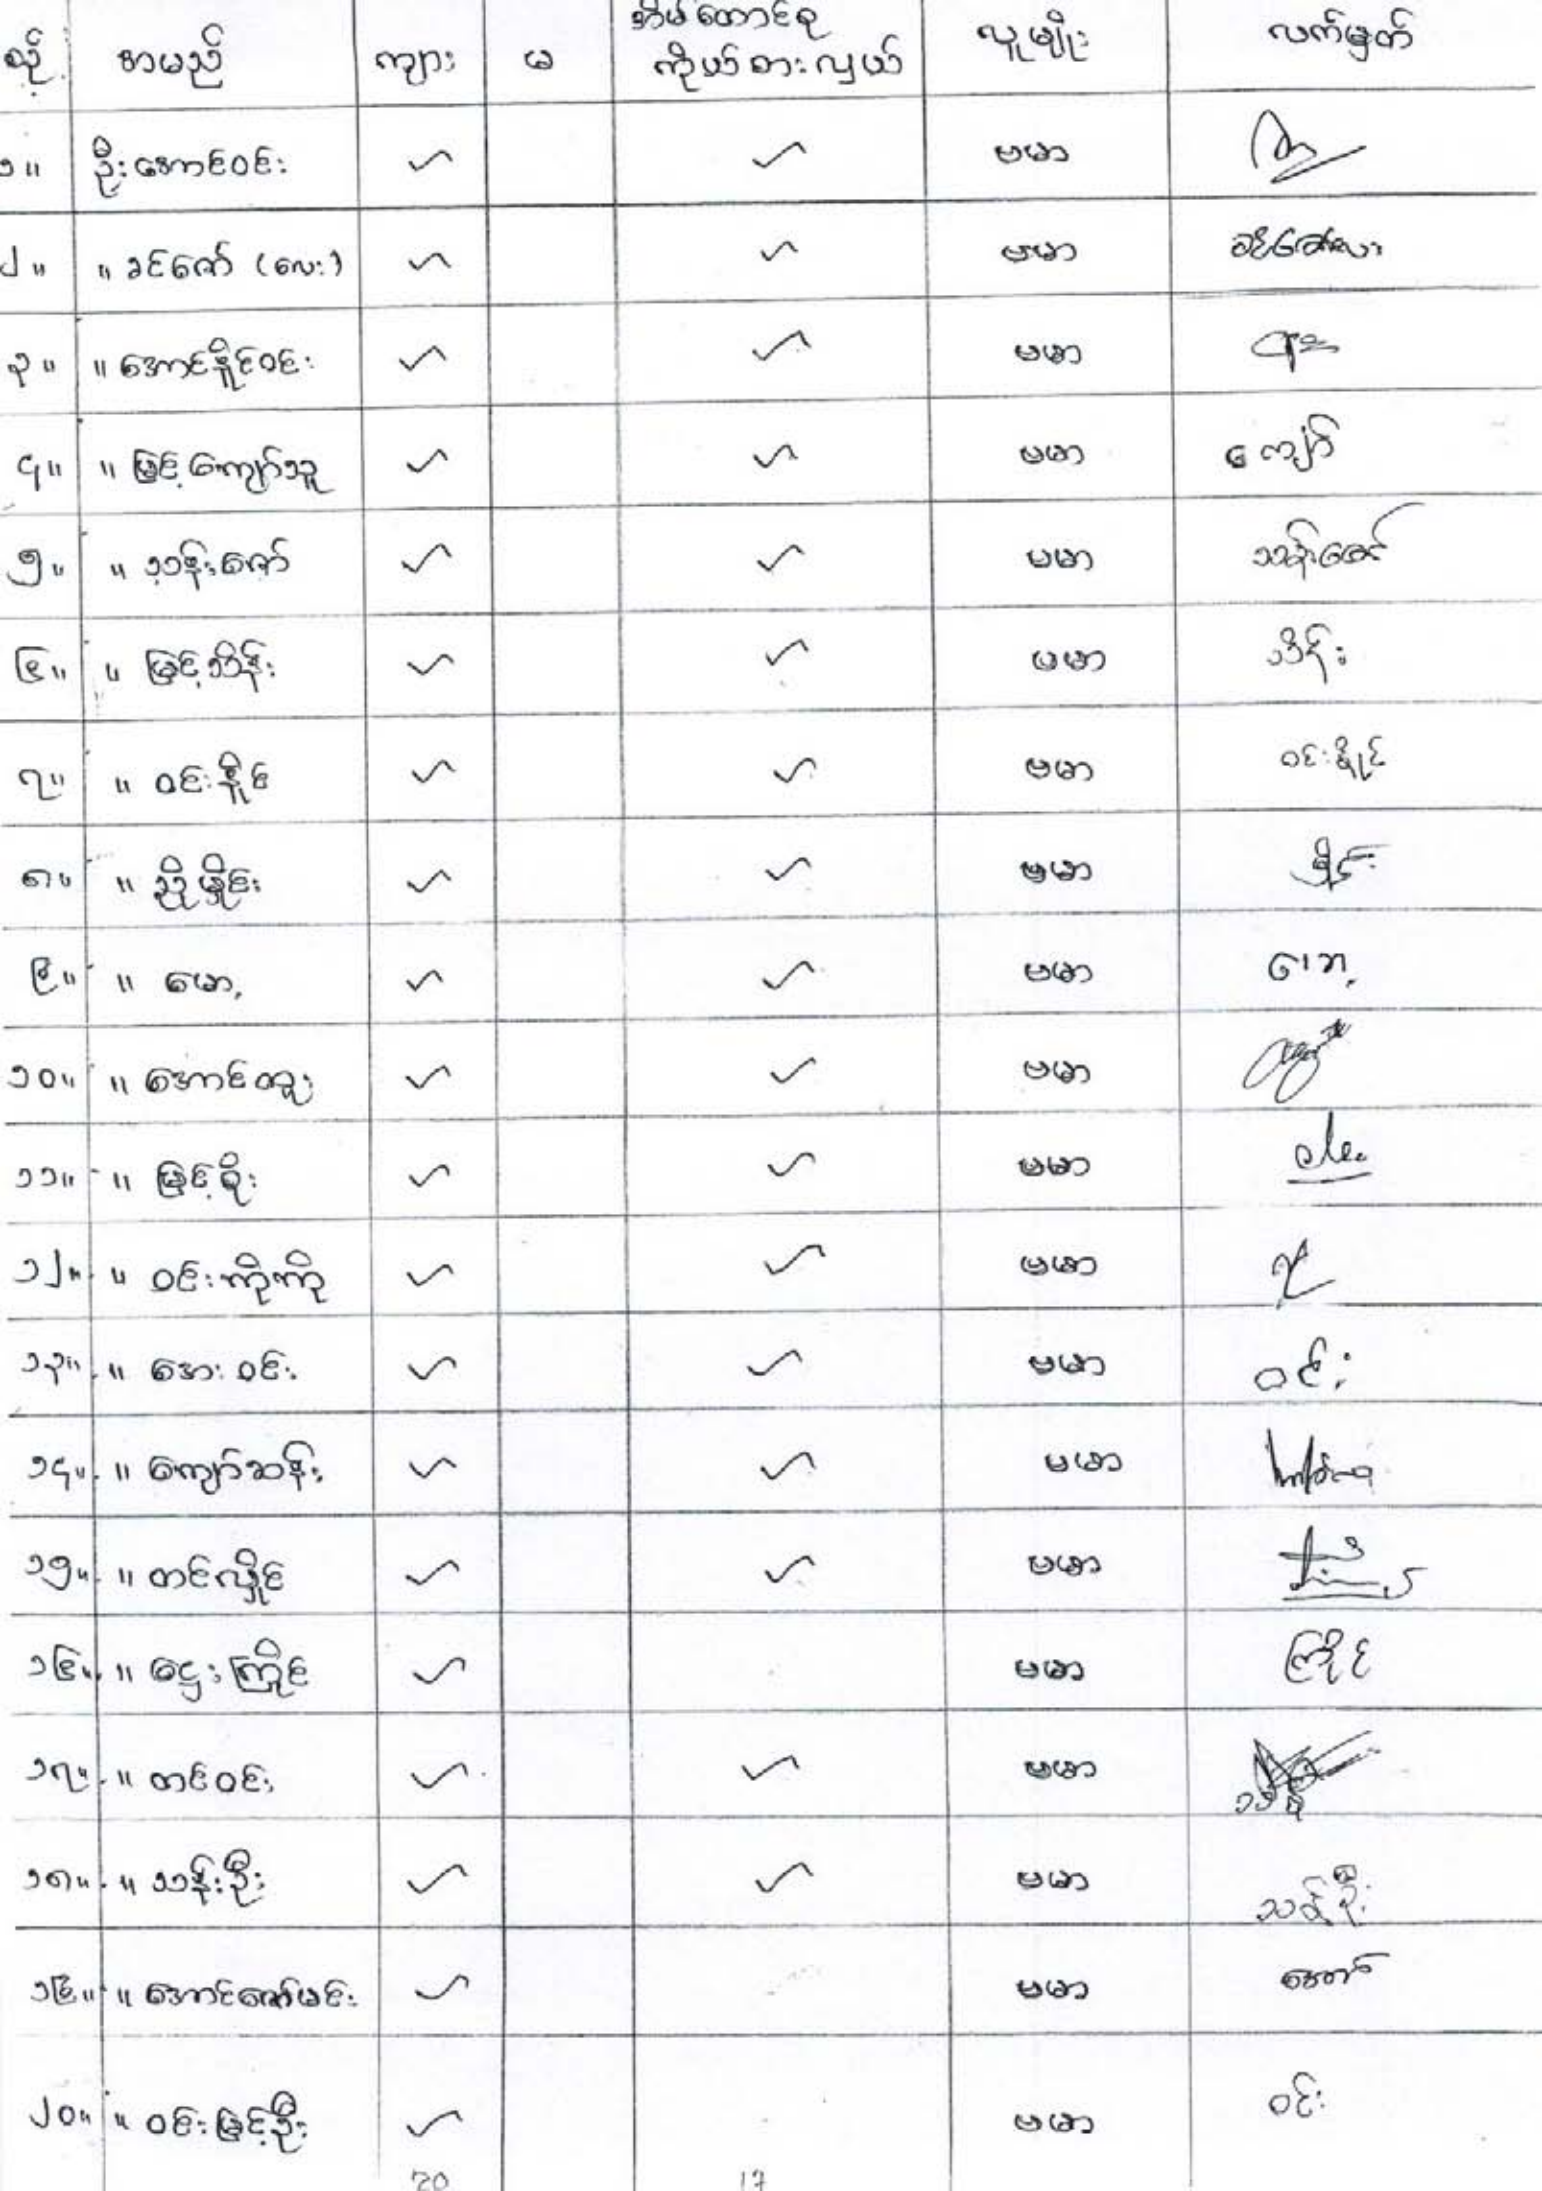 စဉ် အမည် ကျား မ အိမ်ထောင်စု ကိုယ်စားလှယ် လူမျိုး လက်မှတ်
၁။ ဦးအောင်ဝင်း ✓ ✓ ဗမာ
၂။ " ခင်ဇော် (လေး) ✓ ✓ ဗမာ ခင်ဇော်လေး
၃။ " အောင်နိုင်ဝင်း ✓ ✓ ဗမာ
၄။ " မြင့်ကျော်သူ ✓ ✓ ဗမာ ကျော်
၅။ " သန်းဇော် ✓ ✓ ဗမာ သန်းဇော်
၆။ " မြင့်သိန်း ✓ ✓ ဗမာ သိန်း
၇။ " ဝင်းနိုင် ✓ ✓ ဗမာ ဝင်းနိုင်
၈။ " ညိုမှိုင်း ✓ ✓ ဗမာ မှိုင်း
၉။ " မော့ ✓ ✓ ဗမာ
၁၀။ " အောင်ထူး ✓ ✓ ဗမာ
၁၁။ " မြင့်စိုး ✓ ✓ ဗမာ
၁၂။ " ဝင်းကိုကို ✓ ✓ ဗမာ
၁၃။ " အေးဝင်း ✓ ✓ ဗမာ ဝင်း
၁၄။ " ကျော်ဆန်း ✓ ✓ ဗမာ
၁၅။ " တင်လှိုင် ✓ ✓ ဗမာ
၁၆။ " ဌေးကြိုင် ✓ ဗမာ ကြိုင်
၁၇။ " တင်ဝင်း ✓ ✓ ဗမာ
၁၈။ " သန်းဦး ✓ ✓ ဗမာ သန်းဦး
၁၉။ " အောင်ဇော်မင်း ✓ ဗမာ
၂၀။ " ဝင်းမြင့်ဦး ✓ ဗမာ ဝင်း
20 17